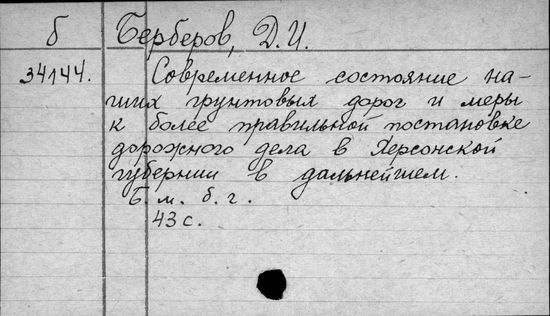 б Берберов, Д.И.
34144. Современное состояние на-
ших грунтовых дорог и меры
к более правильной постановке
дорожного дела в Херсонской
губернии в дальнейшем.
Б. м. б. г.
43 с.